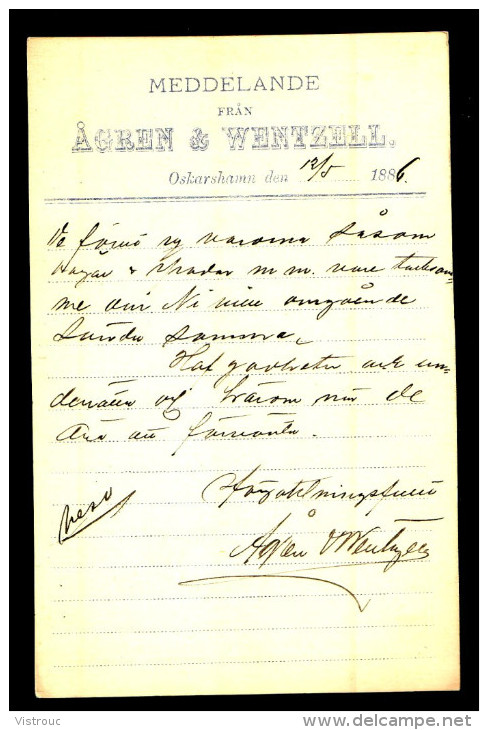 MEDDELANDE
FRÅN
ÅGREN & WENTZELL.
Oskarshamn den 12/5 1886.
De förut varorna såsom
m m. vore tacksam-
me om Ni ville omgående
sända samma,
Haf godheten och un-
derrätta oss härom när de
äro att förvänta.
Högaktningsfullt
Ågren & Wentzell
Vistrouc
delcampe.net